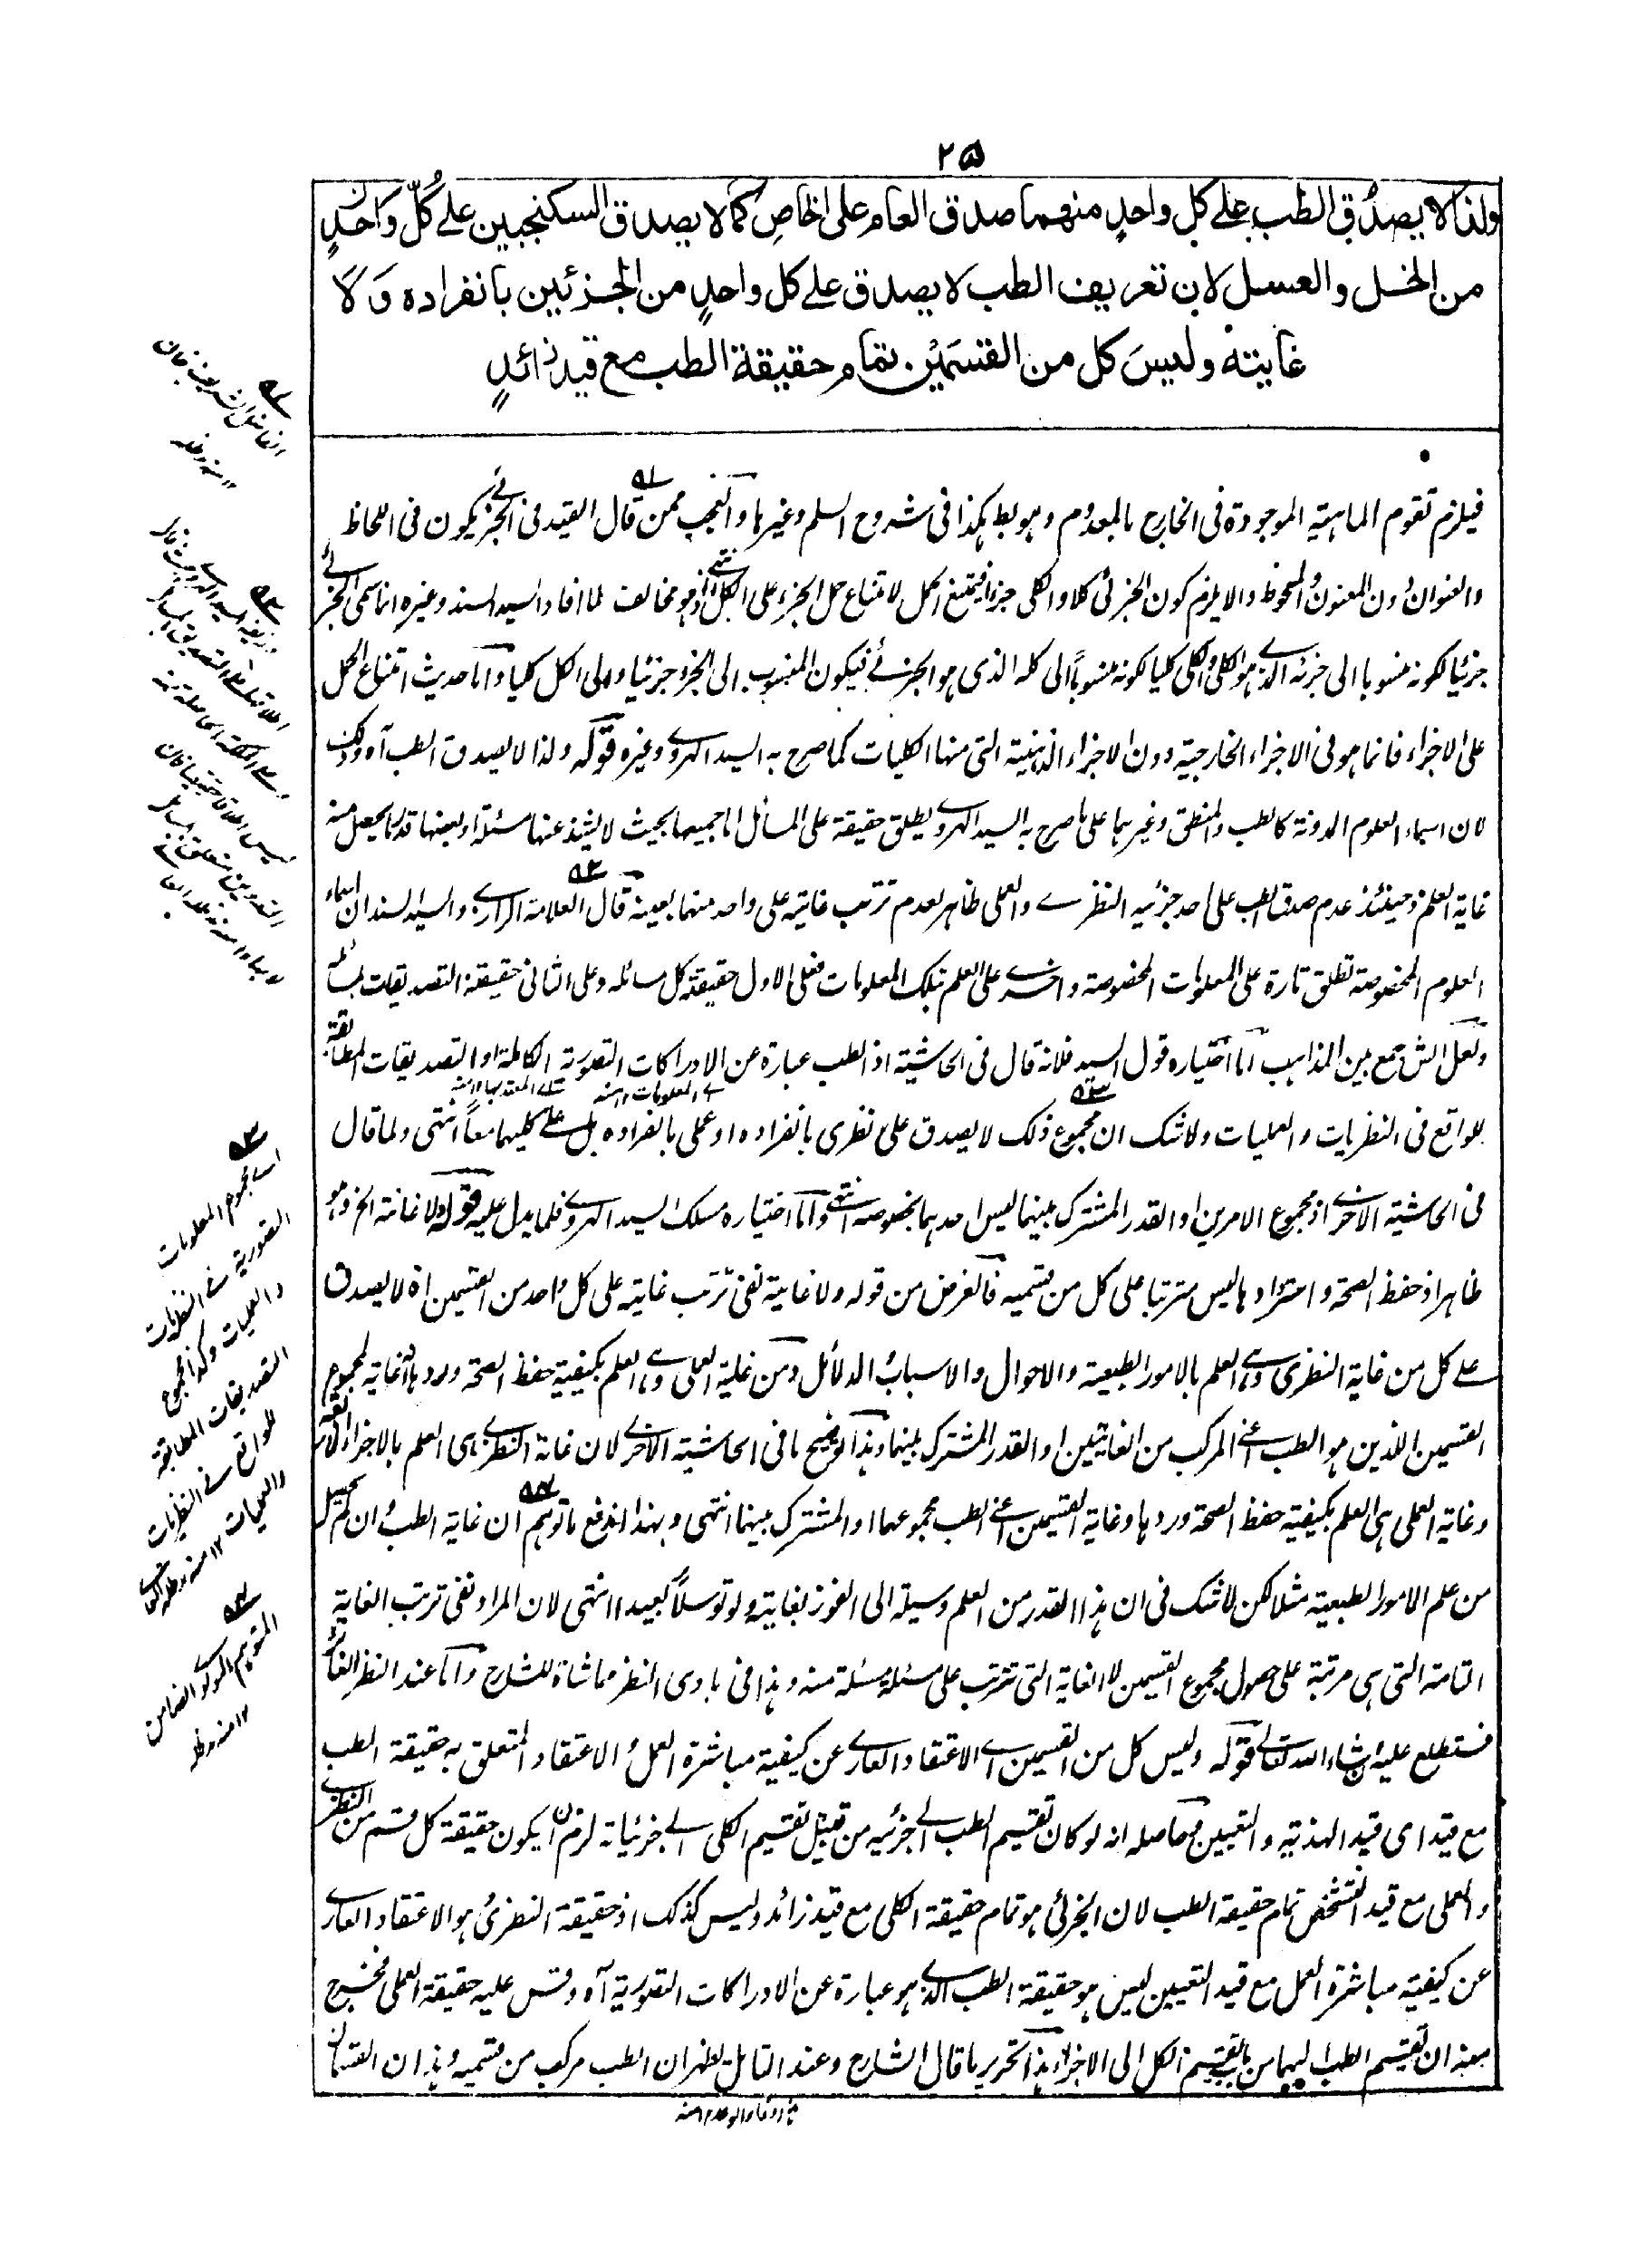 ٢٥
ولذا لا يصدُق الطب على كل واحدٍ منهما صدق العام على الخاصِ كما لا يصدق السكنجبين على كُلّ واحدٍ
من الخل والعسل لان تعريف الطب لا يصدق على كل واحدٍ من الجزئين بانفراده وَلَا
غايته وليسَ كل من القسمَيْن تمام حقيقة الطب مع قيد زائدٍ
فيلزم تقوم الماهية الموجودة فى الخارج بالمعدوم وهو بط هكذا فى شروح السلم وغيرها والعجب ممن قال القيد فى الجزئى يكون فى اللحاظ
والعنوان دون المعنون والملحوظ والا يلزم كون الجزئى كلا والكلى جزءا فيمتنع الحمل لامتناع حمل الجزء على الكل انتهى اذ هو مخالف لما افاد السيد السند وغيره انما سمى الجزئى
جزئيا لكونه منسوبا الى جزئه الذى هو الكلى والكلى كليا لكونه منسوباً الى كله الذى هو الجزئى فيكون المنسوب الى الجزء جزئيا والى الكل كليا واما حديث امتناع الحمل
على الاجزاء فانما هو فى الاجزاء الخارجية دون الاجزاء الذهنية التى منها الكليات كما صرح به السيد الهروى وغيره قوله ولذا لا يصدق الطب آه وذلك
لان اسماء العلوم المدونة كالطب والمنطق وغيرهما على ما صرح به السيد الهروى يطلق حقيقة على المسائل اما جميعها بحيث لا يشذ عنها مسئلة او بعضها قدر ما يحصل منه
غاية العلم وحينئذ عدم صدق الطب على احد جزئيه النظرى والعملى ظاهر لعدم ترتب غايته على واحد منهما بعينه قال العلامة الرازى والسيد السند ان اسماء
العلوم المخصوصة تطلق تارة على المعلومات المخصوصة واخرى على العلم بتلك المعلومات فعلى الاول حقيقة كل مسائله وعلى الثانى حقيقة التصديقات بمسائله
ولعل الش جمع بين المذاهب اما اختياره قول السيد فلانه قال فى الحاشية اذ الطب عبارة عن الادراكات التصورية الكاملة او التصديقات المطابقة
اى المعلومات ١٢ منه
للواقع فى النظريات والعمليات ولا شك ان مجموع ذلك لا يصدق على نظرى بانفراده او عملى بانفراده بل على كليهما معاً انتهى ولما قال
فى الحاشية الاخرى اذ مجموع الامرين او القدر المشترك بينهما ليس احدهما بخصوصه انتهى واما اختياره مسلك السيد الهروى فلما يدل عليه قوله ولا غايته الخ وهو
ظاهر اذ حفظ الصحة واستردادها ليس مترتبا على كل من قسميه فالغرض من قوله ولا غايته نفى ترتب غايته على كل واحد من القسمين اذ لا يصدق
على كل من غاية النظرى وهى العلم بالامور الطبيعية والاحوال والاسباب والدلائل ومن غاية العملى وهى العلم بكيفية حفظ الصحة وردها انها غاية لمجموع
القسمين الذين هو الطب اعنى المركب من الغايتين او القدر المشترك بينهما وهذا توضيح ما فى الحاشية الاخرى لان غاية النظرى هى العلم بالاجزاء
وغاية العملى هى العلم بكيفية حفظ الصحة وردها وغاية القسمين اعنى الطب مجموعهما او المشترك بينهما انتهى وبهذا اندفع ما توهم ان غاية الطب وان لم تحصل
من علم الامور الطبيعية مثلا لكن لا شك فى ان هذا القدر من العلم وسيلة الى الفوز بغايته ولو توسلاً بعيدا انتهى لان المراد نفى ترتب الغاية
التامة التى هى مرتبة على حصول مجموع القسمين لا الغاية التى تترتب على مسئلة مسئلة منه وهذا فى بادى النظر مماشاة للشارح واما عند النظر الغائر
فستطلع عليه ان شاء الله تعالى قوله وليس كل من القسمين اى الاعتقاد العارى عن كيفية مباشرة العمل والاعتقاد المتعلق به حقيقة الطب
مع قيد اى قيد الهذية والتعيين محاصله انه لو كان تقسيم الطب الى جزئيه من قبيل تقسيم الكلى الى جزئياته لزم ان يكون حقيقة كل قسم من النظرى
والعملى مع قيد التشخص تمام حقيقة الطب لان الجزئى هو تمام حقيقة الكلى مع قيد زائد وليس كذلك اذ حقيقة النظرى هو الاعتقاد العارى
عن كيفية مباشرة العمل مع قيد التعيين ليس هو حقيقة الطب الذى هو عبارة عن الادراكات التصورية آه وقس عليه حقيقة العملى فخرج
منه ان تقسيم الطب اليهما من باب تقسيم الكل الى الاجزاء هذا تحرير ما قال الشارح وعند التامل يظهر ان الطب مركب من قسميه وهذان القسمان
الفاضل الشريف خان
١٢ منه مدظله
اى مجموع المعلومات
التصورية فى النظريات
والعمليات وكذا مجموع
التصديقات المطابقة
للواقع فى النظريات
والعمليات ١٢ منه مدظله
المتوهم المولوى الضامن
١٢ منه مدظله